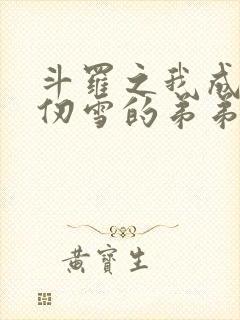 斗羅之我成
仞雪的弟弟
黃寶生